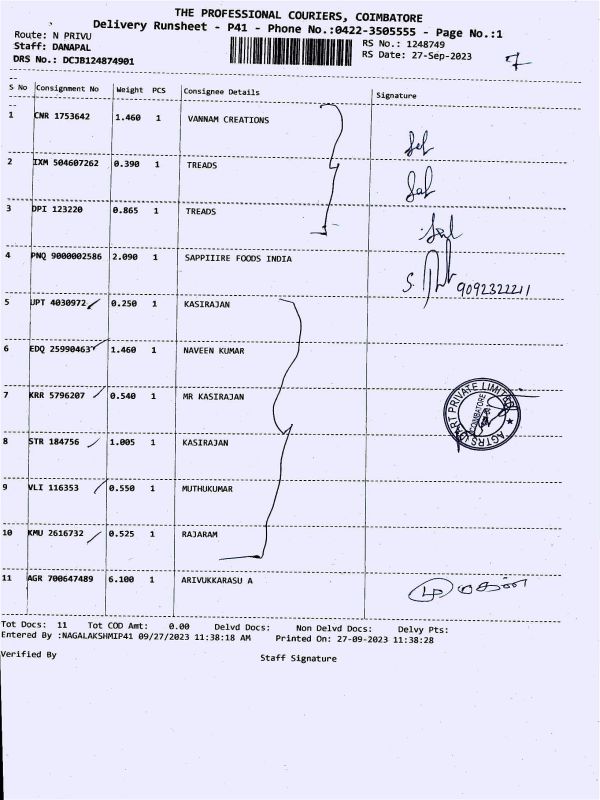 THE PROFESSIONAL COURIERS, COIMBATORE
Delivery Runsheet - P41 - Phone No.:0422-3505555 - Page No.:1
Route: N PRIVU RS No.: 1248749
Staff: DANAPAL RS Date: 27-Sep-2023
DRS No.: DCJB124874901
S No Consignment No Weight PCS Consignee Details Signature
1 CNR 1753642 1.460 1 VANNAM CREATIONS
2 IXM 504607262 0.390 1 TREADS
3 DPI 123220 0.865 1 TREADS
4 PNQ 9000002586 2.090 1 SAPPIIIRE FOODS INDIA
9092322211
5 UPT 4030972 0.250 1 KASIRAJAN
6 EDQ 25990463 1.460 1 NAVEEN KUMAR
7 KRR 5796207 0.540 1 MR KASIRAJAN
8 STR 184756 1.005 1 KASIRAJAN
9 VLI 116353 0.550 1 MUTHUKUMAR
10 KMU 2616732 0.525 1 RAJARAM
11 AGR 700647489 6.100 1 ARIVUKKARASU A
Tot Docs: 11 Tot COD Amt: 0.00 Delvd Docs: Non Delvd Docs: Delvy Pts:
Entered By :NAGALAKSHMIP41 09/27/2023 11:38:18 AM Printed On: 27-09-2023 11:38:28
Verified By Staff Signature